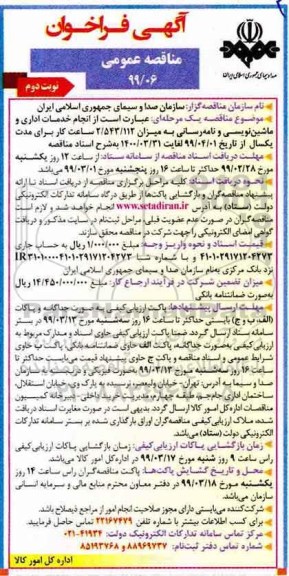 آگهی فراخوان
مناقصه عمومی
۹۹/۰۶
نوبت دوم
صدا و سیمای جمهوری اسلامی ایران
نام سازمان مناقصه‌گزار: سازمان صدا و سیمای جمهوری اسلامی ایران
موضوع مناقصه یک مرحله‌ای: عبارت است از انجام خدمات اداری و
ماشین‌نویسی و نامه‌رسانی به میزان ۲/۵۴۳/۱۱۲ ساعت کار برای مدت
یکسال از تاریخ ۹۹/۰۴/۰۱ لغایت ۱۴۰۰/۰۳/۳۱ به‌شرح اسناد مناقصه
مهلت دریافت اسناد مناقصه از سامانه ستاد: از ساعت ۱۲ روز یکشنبه
مورخ ۹۹/۰۲/۲۸ حداکثر تا ساعت ۱۶ روز پنجشنبه مورخ ۹۹/۰۳/۰۱ می‌باشد
نحوه دریافت اسناد: کلیه مراحل برگزاری مناقصه از دریافت اسناد تا ارائه
پیشنهاد مناقصه‌گران و بازگشایی پاکت‌ها از طریق درگاه سامانه تدارکات الکترونیکی
دولت (ستاد) به آدرس www.setadiran.ir انجام خواهد شد و لازم است
مناقصه‌گران در صورت عدم عضویت قبلی مراحل ثبت‌نام در سایت مذکور و دریافت
گواهی امضای الکترونیکی را جهت شرکت در مناقصه محقق سازند.
قیمت اسناد و نحوه واریز وجه: مبلغ ۱/۰۰۰/۰۰۰ ریال به حساب جاری
۴۱۰۱۰۲۹۱۷۱۲۰۴۲۷۳ و با شماره شبا
نزد بانک مرکزی به‌نام سازمان صدا و سیمای جمهوری اسلامی ایران
میزان تضمین شرکت در فرآیند ارجاع کار: مبلغ ۱۴/۴۵۰/۰۰۰/۰۰۰ ریال
به‌صورت ضمانتنامه بانکی
مهلت ارسال پیشنهادها: پاکت ارزیابی کیفی به‌صورت جداگانه و پاکات
(الف و ب و ج) بایستی حداکثر تا ساعت ۱۶ روز سه‌شنبه مورخ ۹۹/۰۳/۱۳ در
سامانه ستاد ارسال گردد
صدا و سیما به آدرس: تهران- خیابان ولیعصر، نرسیده به پارک وی، خیابان استقلال،
ساختمان اداری جام‌جم، طبقه چهارم، مدیریت بازرگانی داخلی، دبیرخانه کمیسیون
مناقصات اداره کل امور کالا ارسال گردد
الکترونیکی دولت (ستاد) می‌باشد.
زمان بازگشایی پاکات ارزیابی کیفی: زمان بازگشایی پاکات ارزیابی کیفی
راس ساعت ۹ روز شنبه مورخ ۹۹/۰۳/۱۷ در اداره کل امور کالا می‌باشد.
محل و تاریخ گشایش پاکت‌ها: پاکت مناقصه‌گران راس ساعت ۱۴ روز
یکشنبه مورخ ۹۹/۰۳/۱۸ در دفتر معاون محترم منابع مالی و سرمایه انسانی
سازمان می‌باشد.
شرکت‌کننده می‌بایستی دارای مجوز صلاحیت انجام امور از مراجع ذیصلاح باشد.
برای کسب اطلاعات بیشتر با شماره تلفن ۲۲۱۶۷۴۷۹ تماس حاصل فرمایید.
مرکز تماس سامانه تدارکات الکترونیک دولت: ۴۱۹۳۴-۰۲۱
شماره تماس دفتر ثبت‌نام: ۸۸۹۶۹۷۳۷ و ۸۵۱۹۳۷۶۸
اداره کل امور کالا